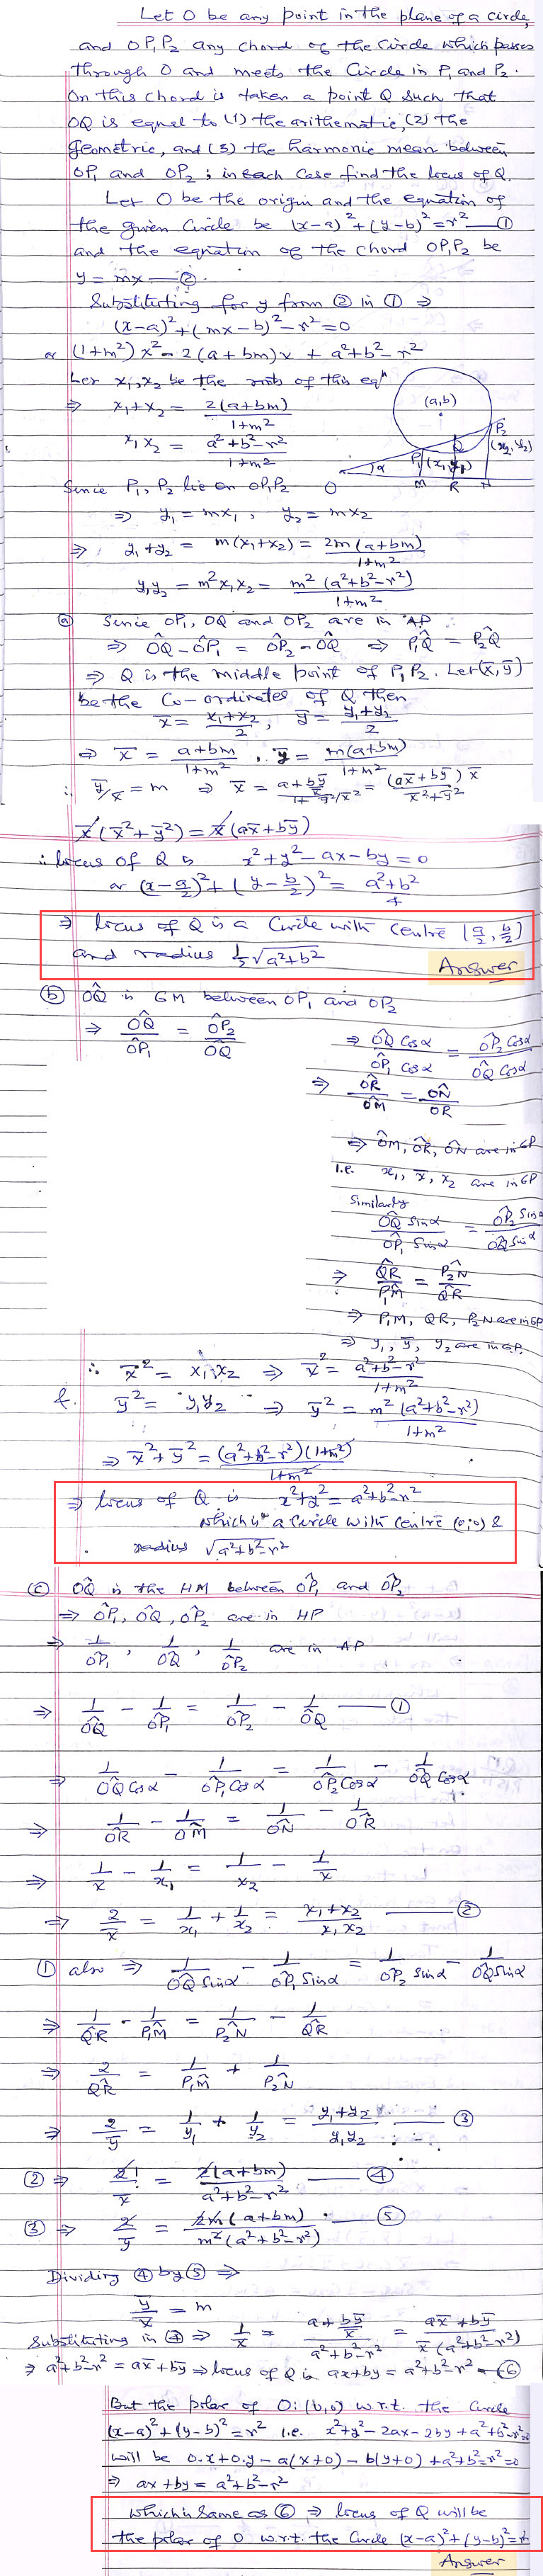 Let O be any point in the plane of a circle,
and OP₁P₂ any chord of the circle which passes
through O and meets the Circle in P₁ and P₂.
On this chord is taken a point Q such that
OQ is equal to (1) the arithematic, (2) the
geometric, and (3) the harmonic mean between
OP₁ and OP₂; in each case find the locus of Q.
Let O be the origin and the equation of
the given Circle be (x-a)²+(y-b)²=r² — ①
and the equation of the chord OP₁P₂ be
y = mx — ②.
Substituting for y from ② in ① ⇒
(x-a)²+(mx-b)²-r²=0
or (1+m²)x² - 2(a+bm)x + a²+b²-r²
Let x₁, x₂ be the roots of this eqⁿ
⇒ x₁+x₂ = 2(a+bm)/1+m²
x₁x₂ = a²+b²-r²/1+m²
(a,b)
P₂ (x₂,y₂)
Q
P₁ (x₁,y₁)
α
O M R N
Since P₁, P₂ lie on OP₁P₂
⇒ y₁ = mx₁, y₂ = mx₂
⇒ y₁+y₂ = m(x₁+x₂) = 2m(a+bm)/1+m²
y₁y₂ = m²x₁x₂ = m²(a²+b²-r²)/1+m²
ⓐ Since OP₁, OQ and OP₂ are in AP
⇒ OQ - OP₁ = OP₂ - OQ ⇒ P₁Q = P₂Q
⇒ Q is the middle point of P₁P₂. Let (x̄, ȳ)
be the Co-ordinates of Q then
x̄ = x₁+x₂/2, ȳ = y₁+y₂/2
⇒ x̄ = a+bm/1+m², ȳ = m(a+bm)/1+m²
∴ ȳ/x̄ = m ⇒ x̄ = a+bȳ/x̄/1+ȳ²/x̄² = (ax̄+bȳ)x̄/x̄²+ȳ²
x̄(x̄²+ȳ²) = x̄(ax̄+bȳ)
∴ locus of Q is x²+y²-ax-by=0
or (x-a/2)²+(y-b/2)² = a²+b²/4
⇒ locus of Q is a Circle with Centre (a/2, b/2)
and radius 1/2√a²+b²
Answer
ⓑ OQ is GM between OP₁ and OP₂
⇒ OQ/OP₁ = OP₂/OQ
⇒ OQ Cosα/OP₁ Cosα = OP₂ Cosα/OQ Cosα
⇒ OR/OM = ON/OR
⇒ OM, OR, ON are in GP
i.e. x₁, x̄, x₂ are in GP
Similarly
OQ Sinα/OP₁ Sinα = OP₂ Sinα/OQ Sinα
⇒ QR/P₁M = P₂N/QR
⇒ P₁M, QR, P₂N are in GP
⇒ y₁, ȳ, y₂ are in GP.
∴ x̄² = x₁x₂ ⇒ x̄² = a²+b²-r²/1+m²
&. ȳ² = y₁y₂ ⇒ ȳ² = m²(a²+b²-r²)/1+m²
⇒ x̄²+ȳ² = (a²+b²-r²)(1+m²)/1+m²
⇒ locus of Q is x²+y² = a²+b²-r²
which is a Circle with Centre (0,0) &
radius √a²+b²-r²
ⓒ OQ is the HM between OP₁ and OP₂
⇒ OP₁, OQ, OP₂ are in HP
⇒ 1/OP₁, 1/OQ, 1/OP₂ are in AP
⇒ 1/OQ - 1/OP₁ = 1/OP₂ - 1/OQ — ①
⇒ 1/OQ Cosα - 1/OP₁ Cosα = 1/OP₂ Cosα - 1/OQ Cosα
⇒ 1/OR - 1/OM = 1/ON - 1/OR
⇒ 1/x̄ - 1/x₁ = 1/x₂ - 1/x̄
⇒ 2/x̄ = 1/x₁ + 1/x₂ = x₁+x₂/x₁x₂ — ②
① also ⇒ 1/OQ Sinα - 1/OP₁ Sinα = 1/OP₂ Sinα - 1/OQ Sinα
⇒ 1/QR - 1/P₁M = 1/P₂N - 1/QR
⇒ 2/QR = 1/P₁M + 1/P₂N
⇒ 2/ȳ = 1/y₁ + 1/y₂ = y₁+y₂/y₁y₂ — ③
② ⇒ 2/x̄ = 2(a+bm)/a²+b²-r² — ④
③ ⇒ 2/ȳ = 2m(a+bm)/m²(a²+b²-r²) — ⑤
Dividing ④ by ⑤ ⇒
ȳ/x̄ = m
Substituting in ④ ⇒ 1/x̄ = a+bȳ/x̄/a²+b²-r² = ax̄+bȳ/x̄(a²+b²-r²)
⇒ a²+b²-r² = ax̄+bȳ ⇒ locus of Q is ax+by = a²+b²-r² — ⑥
But the polar of O: (0,0) w.r.t. the Circle
(x-a)²+(y-b)²=r² i.e. x²+y²-2ax-2by+a²+b²-r²=0
will be 0.x+0.y-a(x+0)-b(y+0)+a²+b²-r²=0
⇒ ax+by = a²+b²-r²
which is same as ⑥ ⇒ locus of Q will be
the polar of O w.r.t. the Circle (x-a)²+(y-b)²=r²
Answer